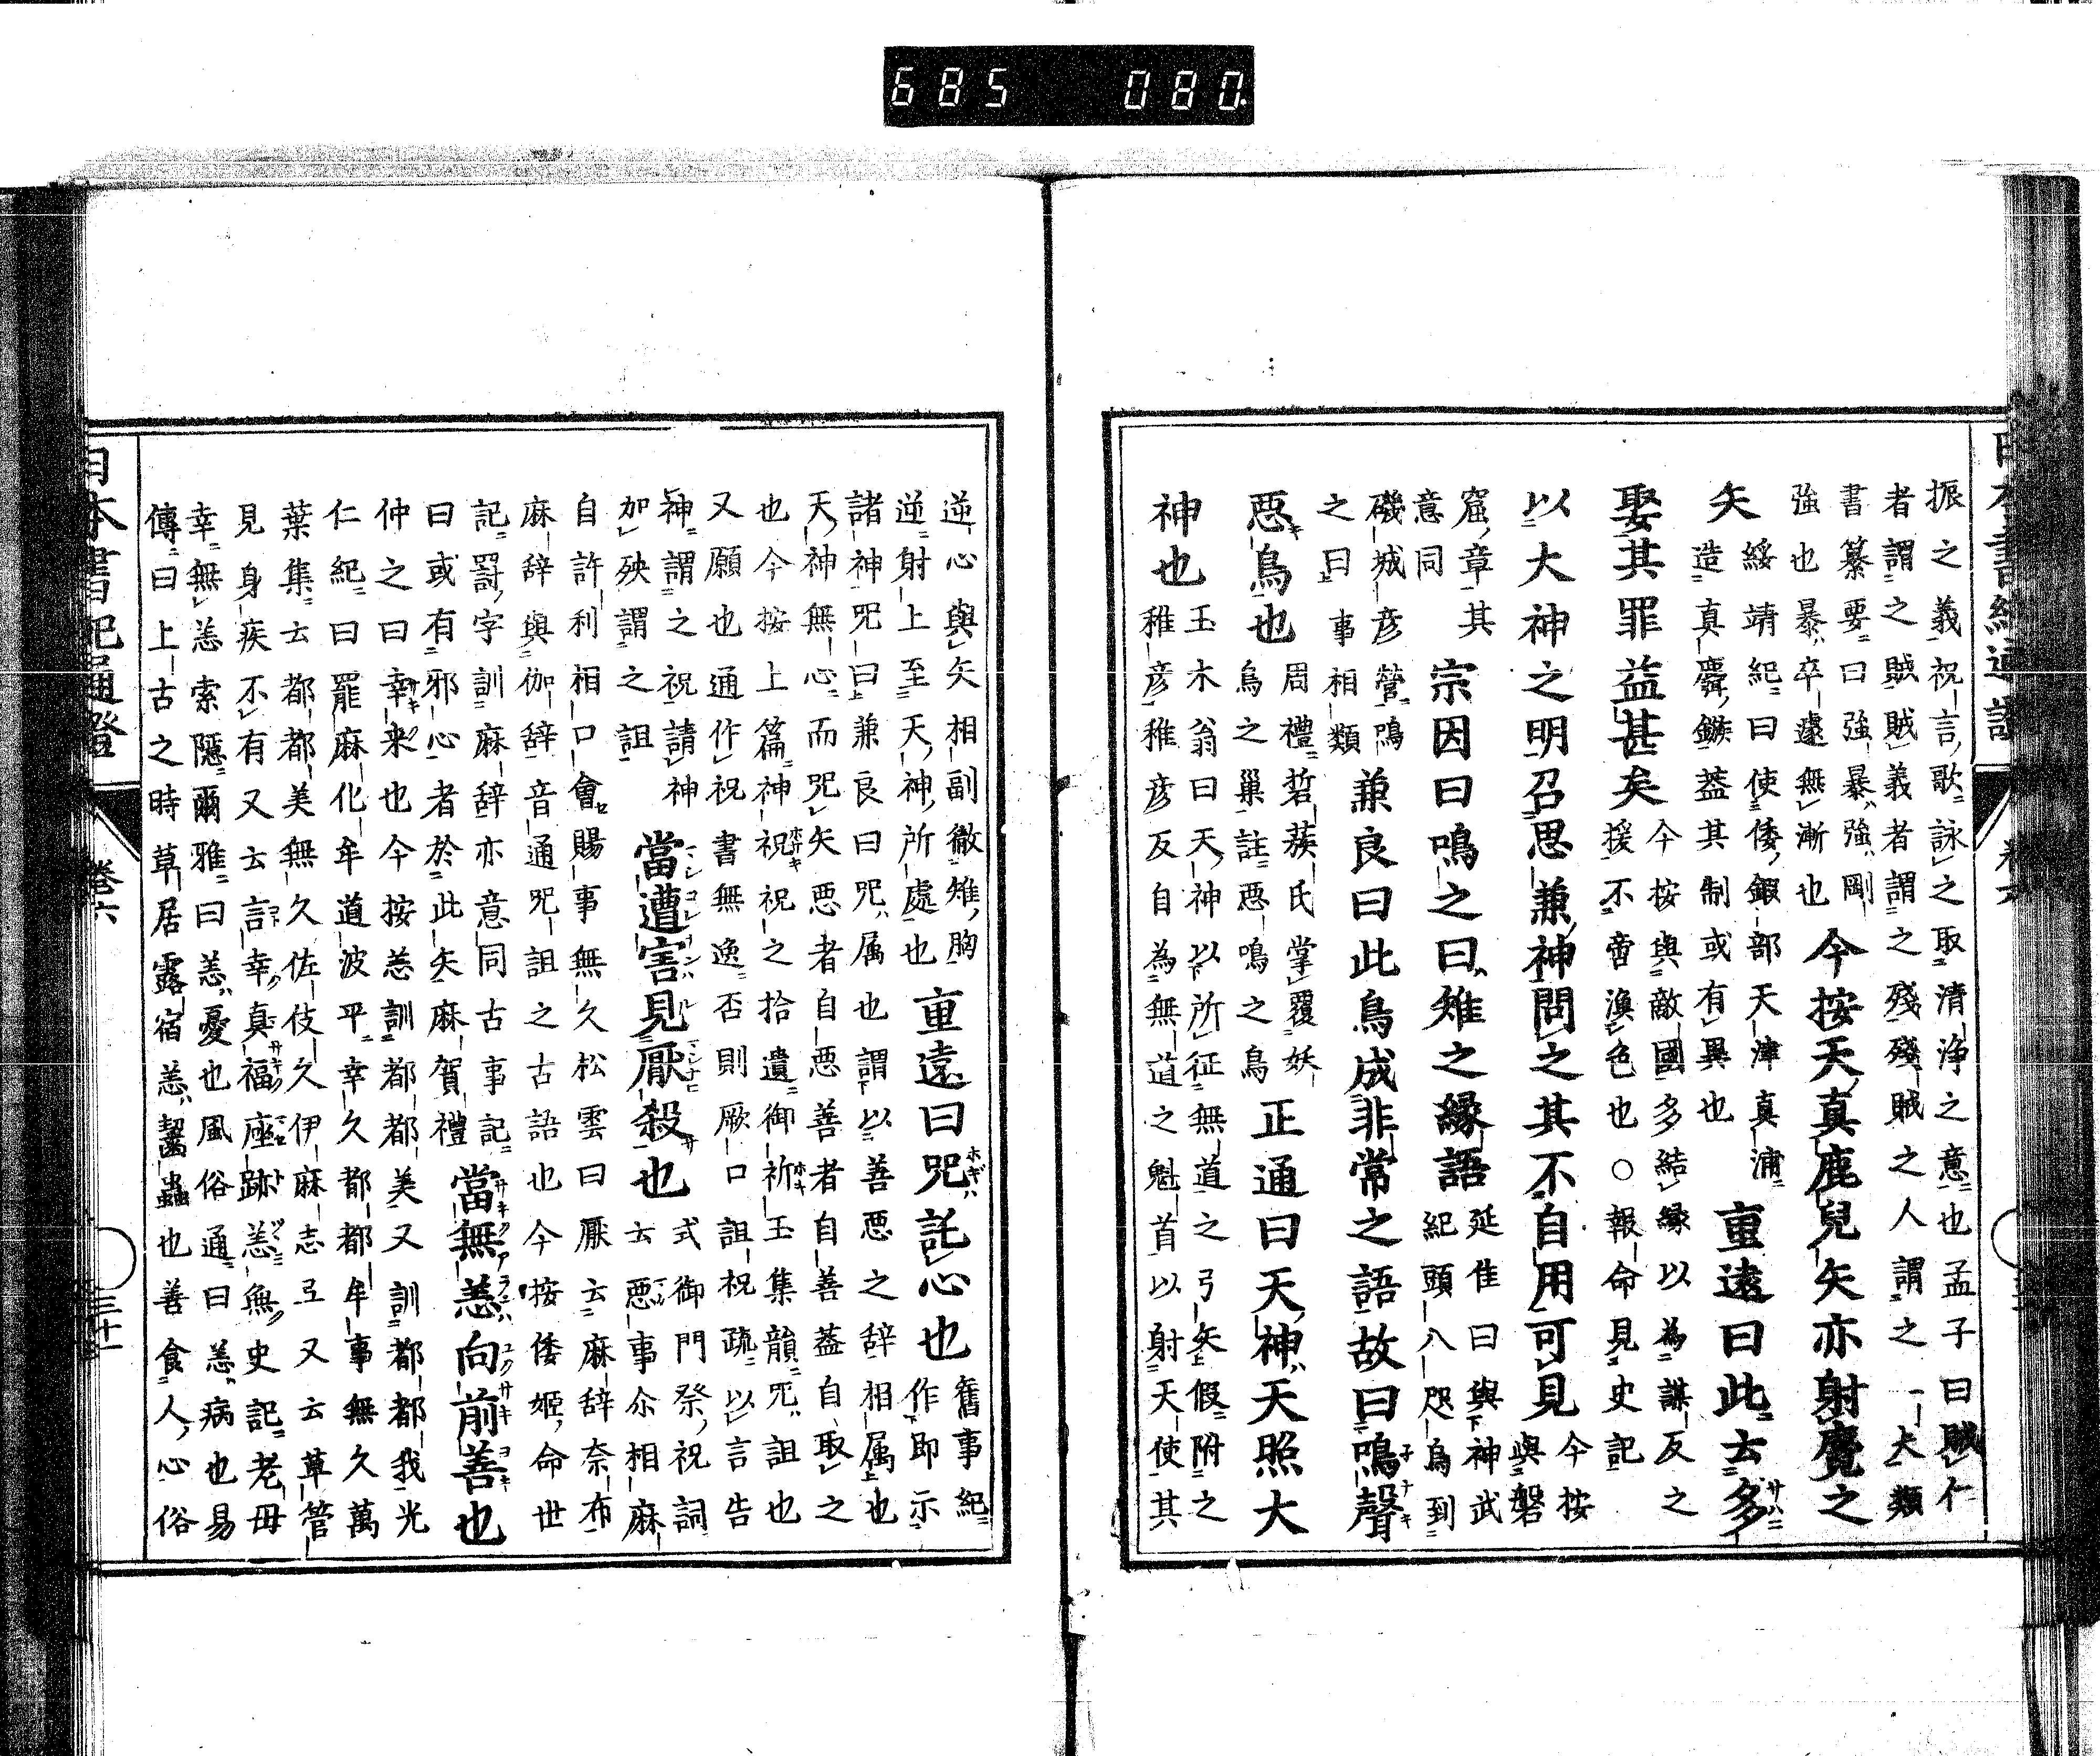 685 080
振之義祝言歌詠之取清浄之意也孟子曰賊仁
者謂之賊賊義者謂之殘殘賊之人謂之一夫類
書纂要曰強暴強剛
強也暴卒遽無漸也
今按天真鹿兒矢亦射麑之
矢
綏靖紀曰使倭鍜部天津真浦
造真麛鏃蓋其制或有異也
重遠曰此云多
娶其罪益甚矣
今按與敵國多結縁以為謀反之
援不啻漁色也○報命見史記
以大神之明召思兼神問之其不自用可見
今按
與磐
窟章其
意同
宗因曰鳴之曰雉之縁語
延佳曰與神武
紀頭八咫烏到
磯城彦營鳴
之曰事相類
兼良曰此鳥成非常之語故曰鳴聲
惡鳥也
周禮硩蔟氏掌覆妖
鳥之巢註惡鳴之鳥
正通曰天神天照大
神也
玉木翁曰天神以所征無道之弓矢假附之
稚彦稚彦反自為無道之魁首以射天使其
逆心與矢相副徹雉胸
逆射上至天神所處也
重遠曰咒託心也
舊事紀
作即示
諸神咒曰兼良曰咒属也謂以善惡之辞相属也
天神無心而咒矢惡者自惡善者自善蓋自取之
也今按上篇神祝祝之拾遺御祈玉集韻咒詛也
又願也通作祝書無逸否則厥口詛祝疏以言告
神謂之祝請神
加殃謂之詛
當遭害見厭殺也
式御門祭祝詞
云惡事尒相麻
自許利相口會賜事無久松雲曰厭云麻辞奈布
麻辞與伽辞音通咒詛之古語也今按倭姬命世
記罸字訓麻辞亦意同古事記
曰或有邪心者於此矢麻賀禮
當無恙向前善也
仲之曰幸来也今按恙訓都都美又訓都都我光
仁紀曰罷麻化牟道波平幸久都都牟事無久萬
葉集云都都美無久佐伎久伊麻志弖又云草管
見身疾不有又云言幸真福座跡恙無史記老母
幸無恙索隱爾雅曰恙憂也風俗通曰恙病也易
傳曰上古之時草居露宿恙齧蟲也善食人心俗
日本書紀通證
卷六
三十一